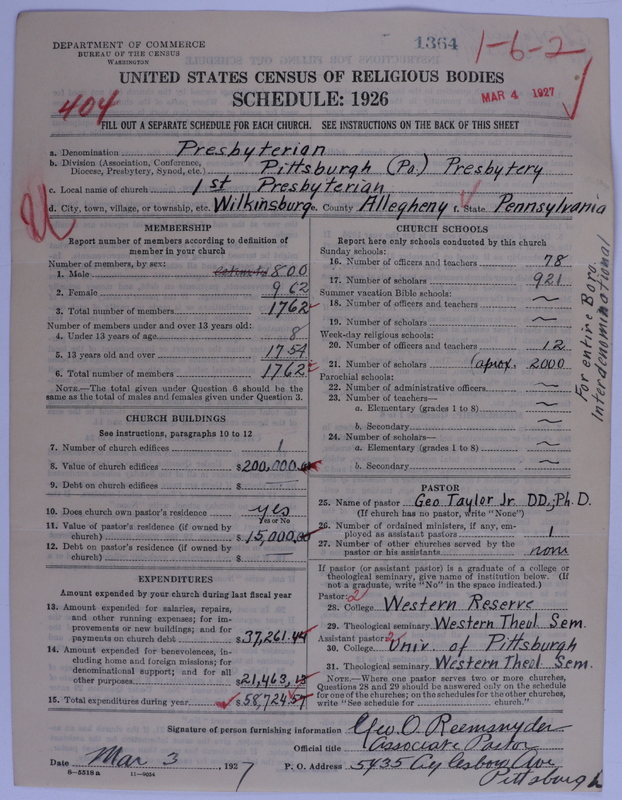 DEPARTMENT OF COMMERCE
BUREAU OF THE CENSUS
WASHINGTON
1364
1-6-2
UNITED STATES CENSUS OF RELIGIOUS BODIES
SCHEDULE: 1926
MAR 4 1927
404
FILL OUT A SEPARATE SCHEDULE FOR EACH CHURCH. SEE INSTRUCTIONS ON THE BACK OF THIS SHEET
a. Denomination Presbyterian
b. Division (Association, Conference, Diocese, Presbytery, Synod, etc.) Pittsburgh (Pa.) Presbytery
c. Local name of church 1st Presbyterian
d. City, town, village, or township, etc. Wilkinsburg e. County Allegheny f. State Pennsylvania
MEMBERSHIP
Report number of members according to definition of
member in your church
Number of members, by sex:
1. Male Estimated 800
2. Female 962
3. Total number of members 1762
Number of members under and over 13 years old:
4. Under 13 years of age 8
5. 13 years old and over 1754
6. Total number of members 1762
NOTE.—The total given under Question 6 should be
the same as total of males and females given under Question 3.
CHURCH BUILDINGS
See instructions, paragraphs 10 to 12
7. Number of church edifices 1
8. Value of church edifices $200,000.00
9. Debt on church edifices $ —
10. Does church own pastor's residence? yes
Yes or No
11. Value of pastor's residence (if owned by
church) $15,000.00
12. Debt on pastor's residence (if owned by
church) $ —
EXPENDITURES
Amount expended by your church during last fiscal year
13. Amount expended for salaries, repairs,
and other running expenses; for im-
provements or new buildings; and for
payments on church debt $37,261.44
14. Amount expended for benevolences, in-
cluding home and foreign missions; for
denominational support; and for all
other purposes $21,463.13
15. Total expenditures during year $58,724.57
CHURCH SCHOOLS
Report here only schools conducted by this church
Sunday schools:
16. Number of officers and teachers 78
17. Number of scholars 921
Summer vacation Bible schools:
18. Number of officers and teachers ~
19. Number of scholars ~
Week-day religious schools:
20. Number of officers and teachers 12
21. Number of scholars (aprox. 2000
Parochial schools:
22. Number of administrative officers ~
23. Number of teachers—
a. Elementary (grades 1 to 8) ~
b. Secondary ~
24. Number of scholars—
a. Elementary (grades 1 to 8) ~
b. Secondary ~
For entire Boro.
Interdenominational
PASTOR
25. Name of pastor Geo Taylor Jr. DD., Ph.D.
(If church has no pastor, write "None")
26. Number of ordained ministers, if any, em-
ployed as assistant pastors 1
27. Number of other churches served by the
pastor or his assistants none
If pastor (or assistant pastor) is a graduate of a college or
theological seminary, give name of institution below. (If
not a graduate, write "No" in the space indicated.)
Pastor: 2
28. College Western Reserve
29. Theological seminary Western Theol. Sem.
Assistant pastor: 2
30. College Univ. of Pittsburgh
31. Theological seminary Western Theol. Sem.
NOTE.—Where one pastor serves two or more churches,
Questions 28 and 29 should be answered only on the schedule
for one of the churches; on the schedules for the other churches,
write "See schedule for church."
Signature of person furnishing information Geo. O. Reemsnyder
Official title Associate Pastor
Date Mar 3, 1927 P. O. Address 5435 Aylesboro Ave
Pittsburgh
8—5518 a 11—9054